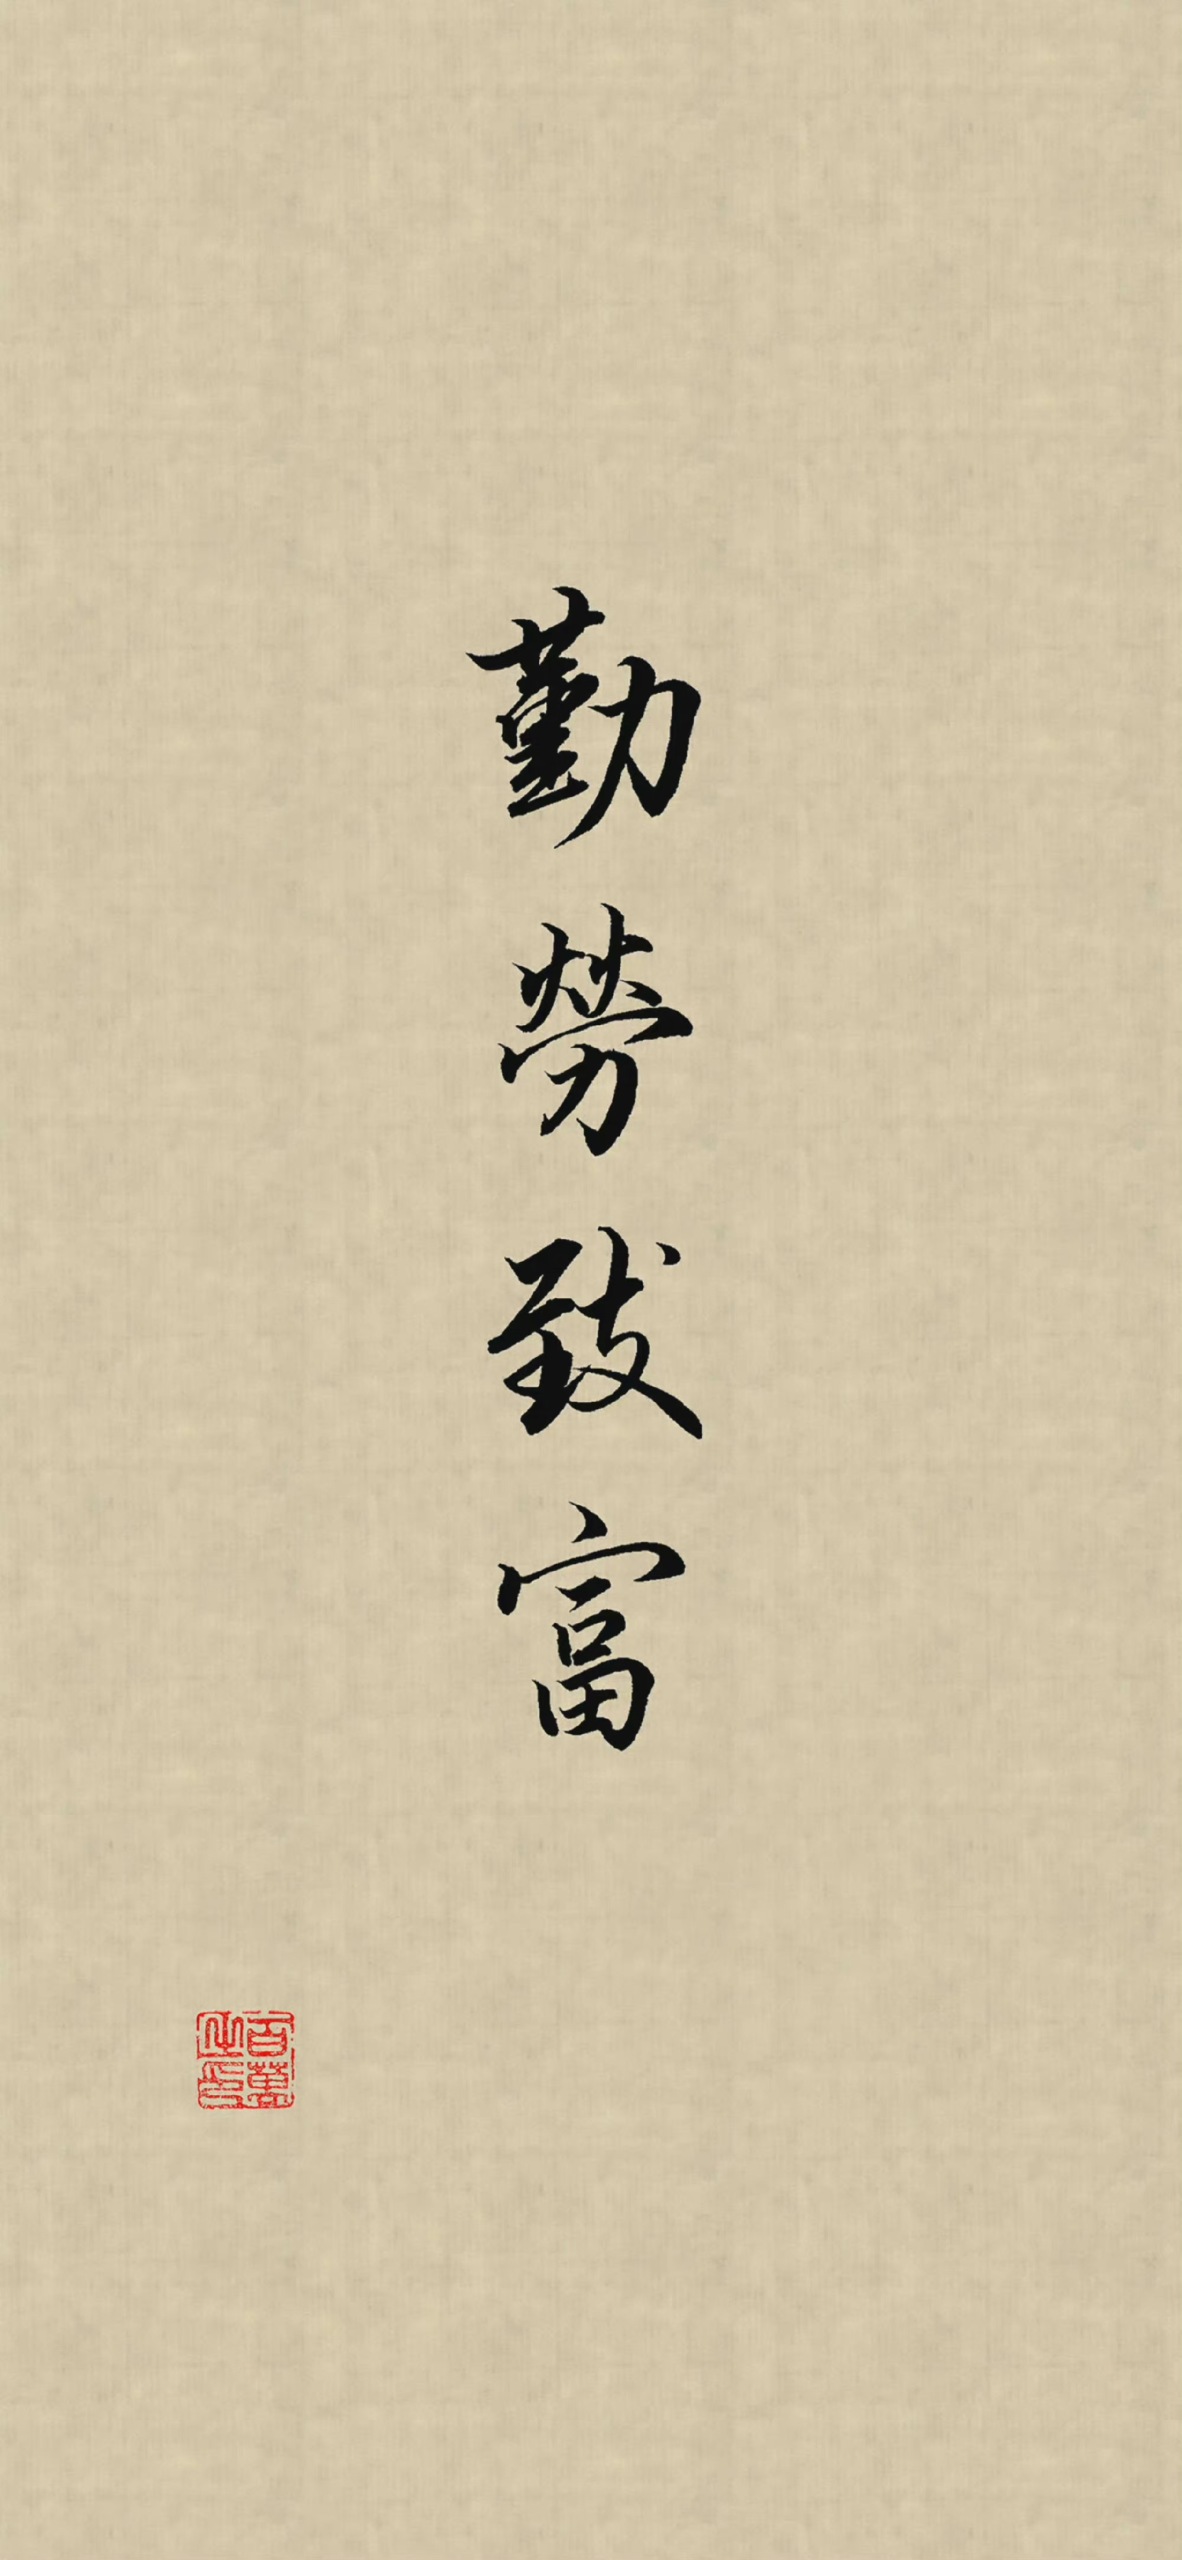 勤勞致富